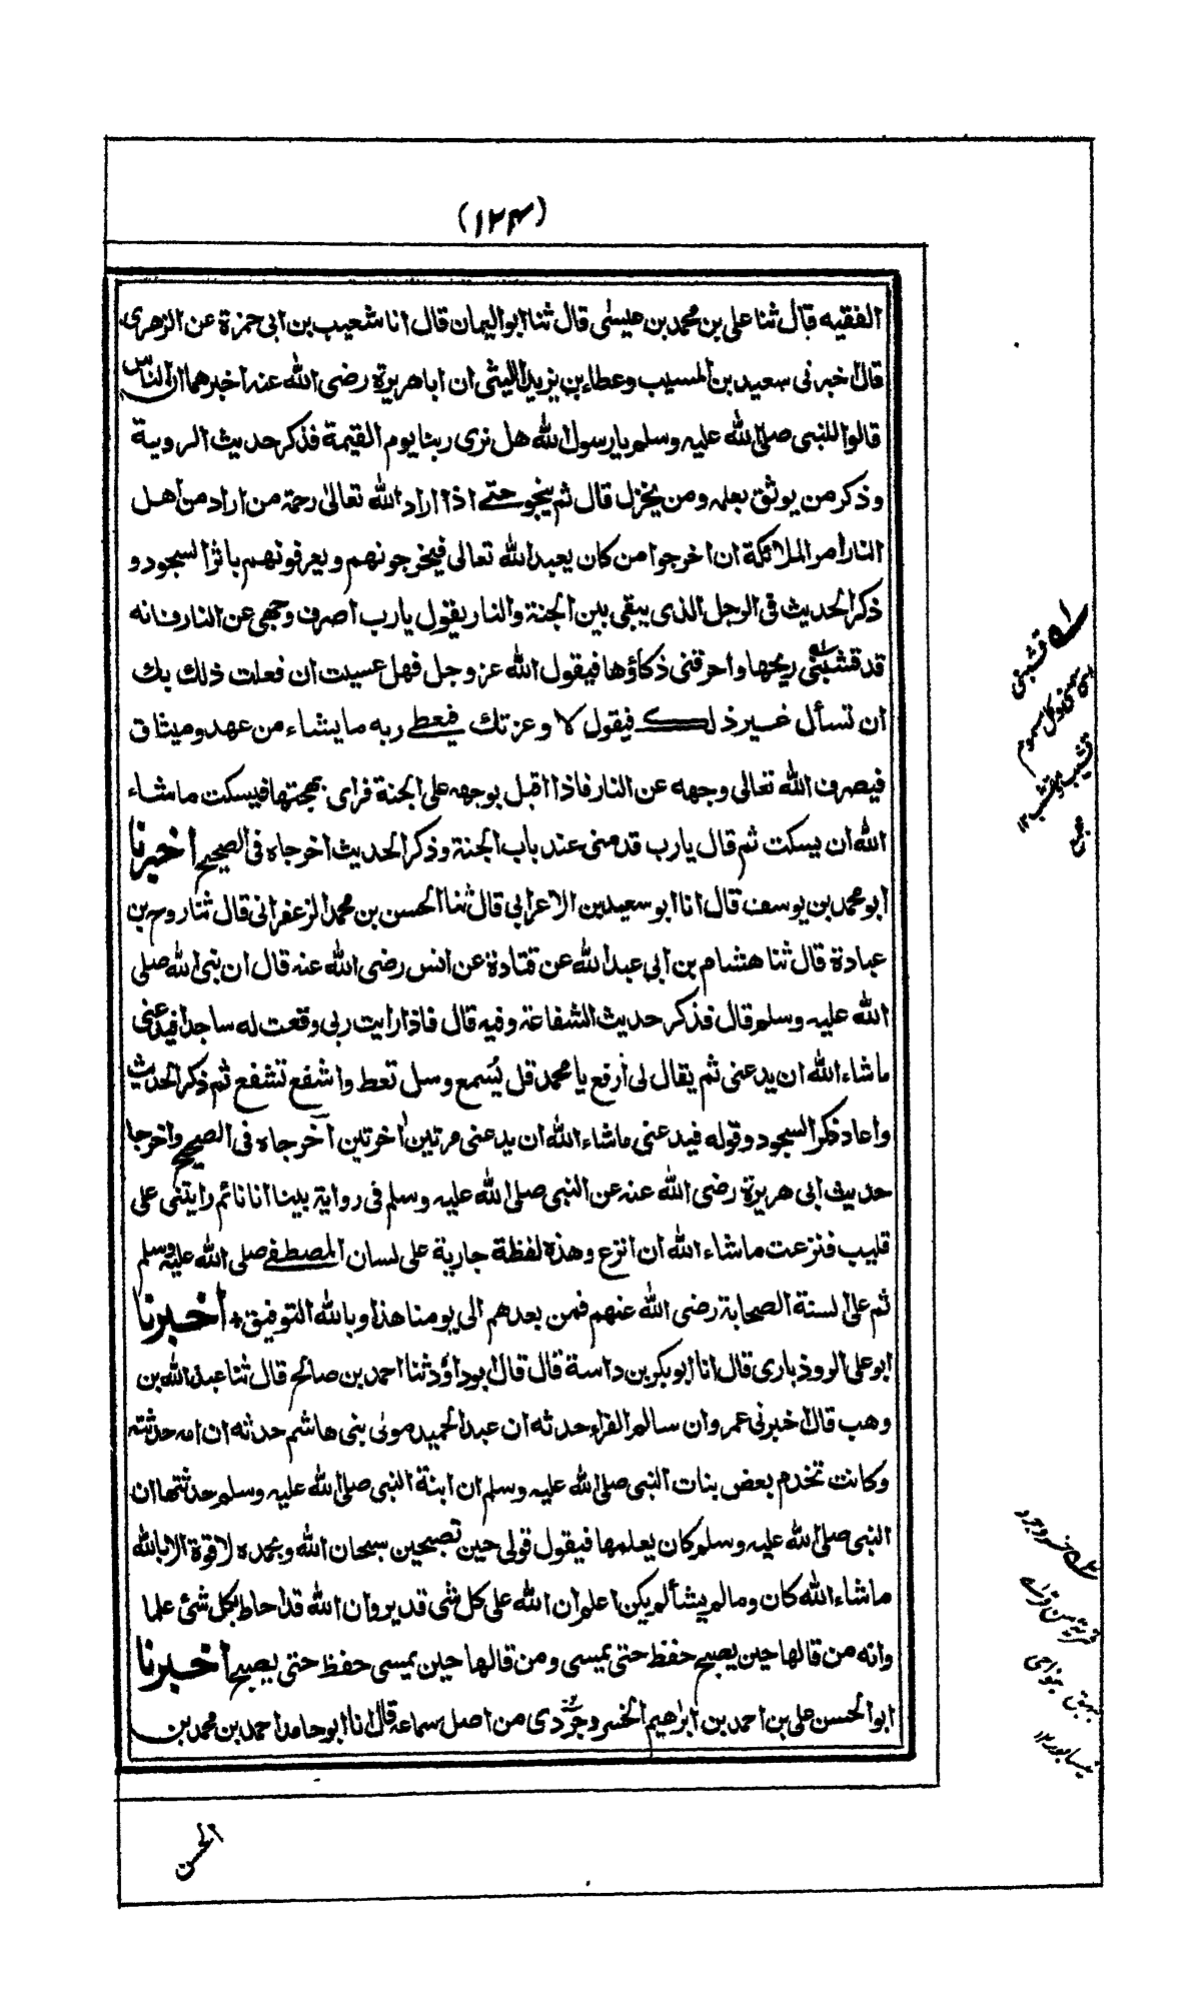 (١٢٤)
الفقيه قال ثنا علي بن محمد بن عيسٰى قال ثنا ابو اليمان قال انا شعيب بن ابى حمزة عن الزهرى
قال اخبرنى سعيد بن المسيب وعطاء بن يزيد الليثى ان ابا هريرة رضى الله عنه اخبرهما ان الناس
قالوا للنبى صلى الله عليه وسلم يا رسول الله هل نرى ربنا يوم القيمة فذكر حديث الروية
وذكر من يوثق بعمله ومن يخزل قال ثم ينجو حتے اذا اراد الله تعالىٰ رحمة من اراد من اهل
النار امر الملائكة ان اخرجوا من كان يعبد الله تعالى فيخرجونهم ويعرفونهم باثر السجود و
ذكر الحديث فى الرجل الذى يبقى بين الجنة والنار يقول يا رب اصرف وجهى عن النار فانه
قد قشبنى ريحها واحرقنى ذكاؤها فيقول الله عز وجل فهل عسيت ان فعلت ذلك بك
ان تسأل غير ذلك فيقول لا وعزتك فيعطے ربه ما يشاء من عهد وميثاق
فيصرف الله تعالى وجهه عن النار فاذا اقبل بوجهه على الجنة فراى بهجتها فيسكت ما شاء
الله ان يسكت ثم قال يا رب قدمنى عند باب الجنة وذكر الحديث اخرجاه فى الصحيح اخبرنا
ابو محمد بن يوسف قال انا ابو سعيد بن الاعرابي قال ثنا الحسن بن محمد الزعفرانى قال ثنا روح بن
عبادة قال ثنا هشام بن ابى عبد الله عن قتادة عن انس رضى الله عنه قال ان نبى الله صلى
الله عليه وسلم قال فذكر حديث الشفاعة وفيه قال فاذا رايت ربى وقعت له ساجدا فيدعنى
ما شاء الله ان يدعنى ثم يقال لى ارفع يا محمد قل يُسمع وسل تعط واشفع تشفع ثم ذكر الحديث
واعاد ذكر السجود وقوله فيدعنى ماشاء الله ان يدعنى مرتين اخرتين آخرجاه فى الصحيح واخرجا
حديث ابى هريرة رضى الله عنه عن النبى صلى الله عليه وسلم فى رواية بينا انا نائم رايتنى على
قليب فنزعت ما شاء الله ان انزع وهذه لفظة جارية على لسان المصطفے صلى الله عليه وسلم
ثم على السنة الصحابة رضى الله عنهم فمن بعدهم الى يومنا هذا وبالله التوفيق + اخبرنا
ابو على الروذبارى قال انا ابو بكر بن داسة قال قال ابو داؤد ثنا احمد بن صالح قال ثنا عبد الله بن
وهب قال اخبرنى عمرو ان سالم الفراء حدثه ان عبد الحميد مولى بنى هاشم حدثه ان امه حدثته
وكانت تخدم بعض بنات النبى صلى الله عليه وسلم ان ابنة النبى صلى الله عليه وسلم حدثتها ان
النبى صلى الله عليه وسلم كان يعلمها فيقول قولى حين تصبحين سبحان الله وبحمده لا قوة الا بالله
ما شاء الله كان وما لم يشأ لم يكن اعلم ان الله على كل شى قدير وان الله قد احاط بكل شئ علما
وانه من قالها حين يصبح حفظ حتى يمسى ومن قالها حين يمسى حفظ حتى يصبح اخبرنا
ابو الحسن على بن احمد بن ابراهيم الخسروجردى من اصل سماعه قال انا ابو حامد احمد بن محمد بن
له قشبنى
سمنى وكل مسموم
قشيب ومقشب ١٢
خسروجرد
قرية من قراے
بيهق بنواحى
نيسابور ١٢
الحسن